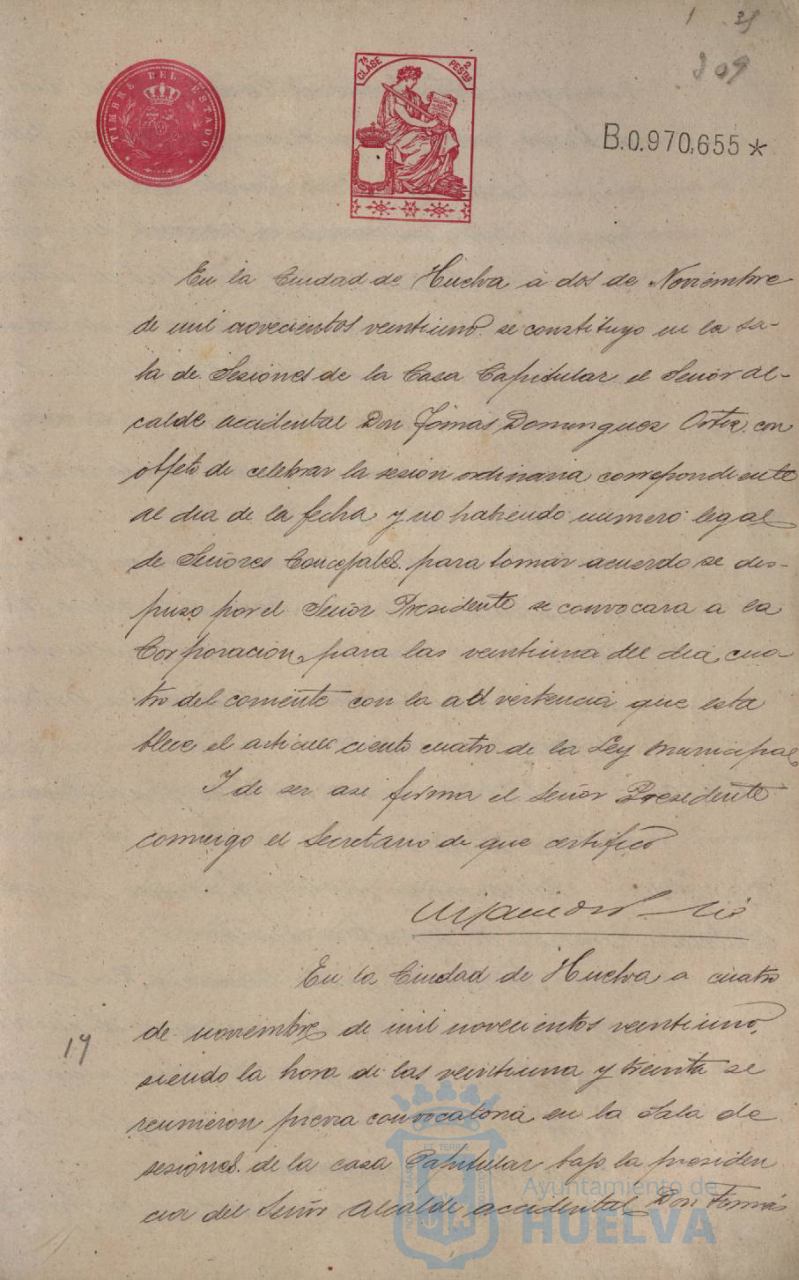 1 35
309
TIMBRE DEL ESTADO
7ª CLASE 2 PESTAS
B.0.970,655 *
En la Ciudad de Huelva a dos de Noviembre
de mil novecientos veintiuno se constituyo en la sa-
la de Sesiones de la Casa Capitular el Señor Al-
calde accidental Don Tomas Dominguez Ortiz con
objeto de celebrar la sesion ordinaria correspondiente
al dia de la fecha y no habiendo numero legal
de Señores Concejales para tomar acuerdo se dis-
puso por el Señor Presidente se convocara a la
Corporacion para las veintiuna del dia cua-
tro del corriente con la advertencia que esta
blece el articulo ciento cuatro de la Ley Municipal
Y de ser asi firma el Señor Presidente
conmigo el Secretario de que certifico
En la Ciudad de Huelva a cuatro
17
de noviembre de mil novecientos veintiuno,
siendo la hora de las veintiuna y treinta se
reunieron previa convocatoria en la Sala de
sesiones de la casa Capitular bajo la presiden
cia del Señor Alcalde accidental Don Tomás
Ayuntamiento de
HUELVA